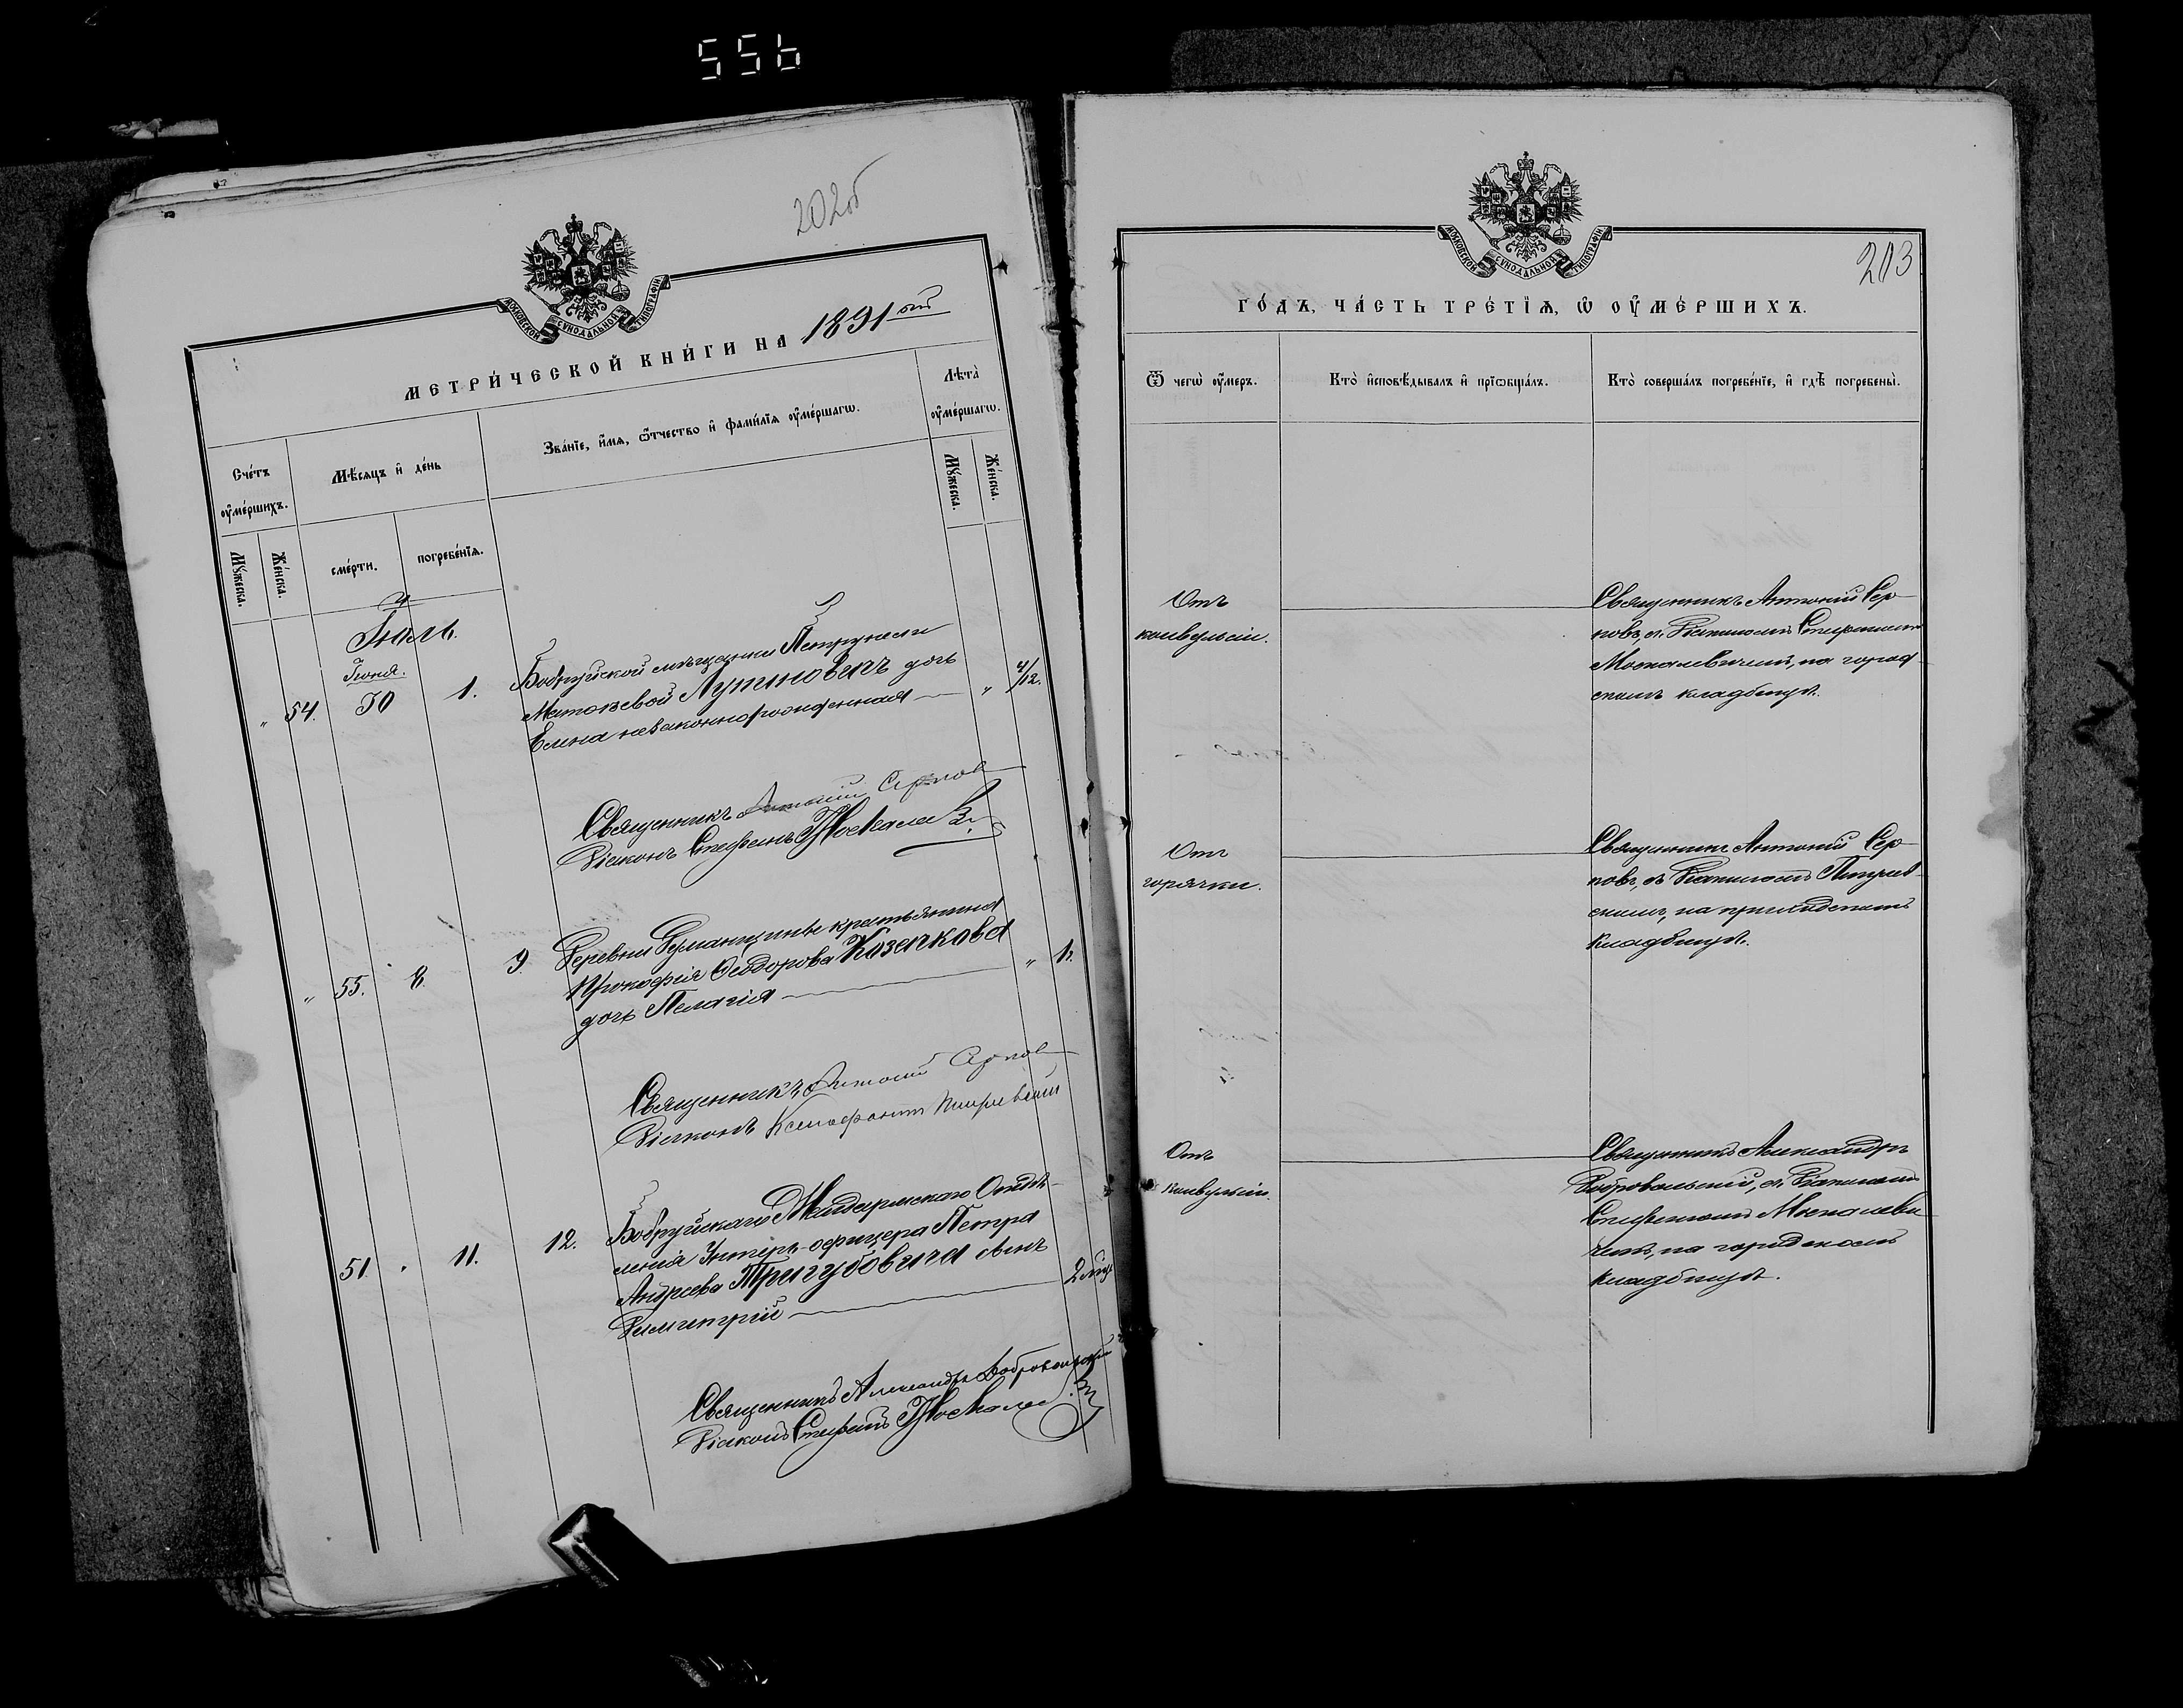 556
202об
МОСКОВСКОЙ СѴНОДАЛЬНОЙ ТИПОГРАФІИ
МЕТРИ́ЧЕСКОЙ КНИ́ГИ НА 1891ый
Сче́тъ оу҆ме́ршихъ.
Мѣ́сяцъ и҆ де́нь
Зва́нїе, и҆́мѧ, ѻ҆́тчество и҆ фами́лїѧ оу҆ме́ршагѡ.
Лѣ́та оу҆ме́ршагѡ.
Мꙋ́жеска.
Же́нска.
сме́рти.
погребе́нїѧ.
Мꙋ́жеска.
Же́нска.
Іюль.
Іюня.
„ 54. 30 1. Бобруйской мѣщанки Петрунели
Матвѣевой Лутиновичъ дочь
Елена незаконнорожденная „ 4/12.
Священникъ Антоній Серпов
Діаконъ Стефанъ Москалев
„ 55. 8. 9. Деревни крестьянина
Прокофія Ѳеодорова Козачкова
дочь Пелагія „ 1.
Священникъ Антоній Серпов
Діаконъ Ксенофонтъ
51. „ 11. 12. Бобруйскаго Жандармскаго Отдѣ-
ленія Унтеръ-офицера Петра
Андреева Тригубовича сынъ
Димитрій 2 мѣс.
Священникъ Александръ Добровольскій
Діаконъ Стефанъ Москалев
203
МОСКОВСКОЙ СѴНОДАЛЬНОЙ ТИПОГРАФІИ
ГО́ДЪ, ЧА́СТЬ ТРЕ́ТЇѦ, Ѡ҆ ОУ҆МЕ́РШИХЪ.
Ѿ чегѡ̀ оу҆́меръ.
Кто̀ и҆сповѣ́дывалъ и҆ прїѻбща́лъ.
Кто̀ соверша́лъ погребе́нїе, и҆ гдѣ̀ погребены̀.
Отъ
конвульсіи.
Священникъ Антоній Сер-
повъ, съ Діакономъ Стефаномъ
Москалевичемъ, на город-
скомъ кладбищѣ.
Отъ
горячки.
Священникъ Антоній Сер-
повъ, съ Діакономъ
на приходскомъ
кладбищѣ.
Отъ
конвульсіи.
Священникъ Александръ
Добровольскій, съ Діакономъ
Стефаномъ Москалеви-
чемъ, на городскомъ
кладбищѣ.